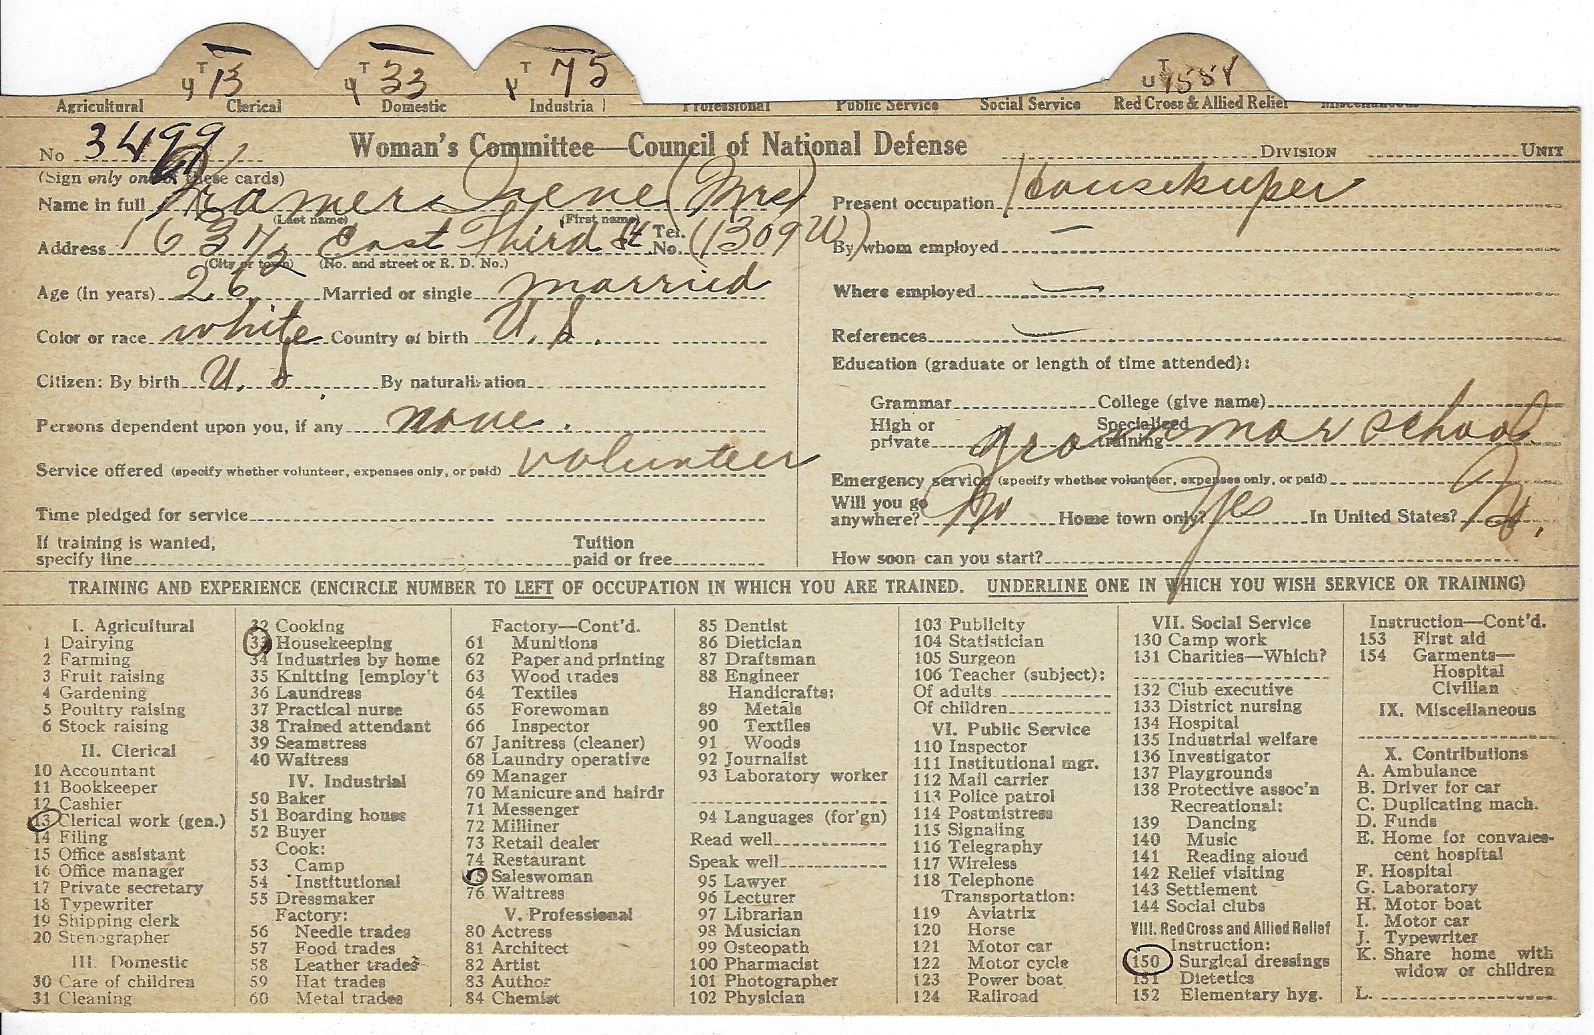 T 13 T 33 T 75 U T
Agricultural Clerical Domestic Industrial Professional Public Service Social Service Red Cross & Allied Relief Miscellaneous
No 3499 Woman's Committee—Council of National Defense DIVISION UNIT
(Sign only one of these cards)
Name in full Kramer Irene (Mrs)
(Last name) (First name)
Address 1637½ East Third St Tel. No. (1309W)
(City or town) (No. and street or R. D. No.)
Age (in years) 26 Married or single married
Color or race white Country of birth U.S.
Citizen: By birth U.S. By naturalization
Persons dependent upon you, if any none.
Service offered (specify whether volunteer, expenses only, or paid) volunteer
Time pledged for service
If training is wanted, specify line Tuition paid or free
Present occupation Housekeeper
By whom employed —
Where employed —
References —
Education (graduate or length of time attended):
Grammar College (give name)
High or private Specialized training grammar school
Emergency service (specify whether volunteer, expenses only, or paid)
Will you go anywhere? No Home town only? Yes In United States? No.
How soon can you start?
TRAINING AND EXPERIENCE (ENCIRCLE NUMBER TO LEFT OF OCCUPATION IN WHICH YOU ARE TRAINED. UNDERLINE ONE IN WHICH YOU WISH SERVICE OR TRAINING)
I. Agricultural
1 Dairying
2 Farming
3 Fruit raising
4 Gardening
5 Poultry raising
6 Stock raising
II. Clerical
10 Accountant
11 Bookkeeper
12 Cashier
13 Clerical work (gen.)
14 Filing
15 Office assistant
16 Office manager
17 Private secretary
18 Typewriter
19 Shipping clerk
20 Stenographer
III. Domestic
30 Care of children
31 Cleaning
32 Cooking
33 Housekeeping
34 Industries by home
35 Knitting [employ't
36 Laundress
37 Practical nurse
38 Trained attendant
39 Seamstress
40 Waitress
IV. Industrial
50 Baker
51 Boarding house
52 Buyer
Cook:
53 Camp
54 Institutional
55 Dressmaker
Factory:
56 Needle trades
57 Food trades
58 Leather trades
59 Hat trades
60 Metal trades
Factory—Cont'd.
61 Munitions
62 Paper and printing
63 Wood trades
64 Textiles
65 Forewoman
66 Inspector
67 Janitress (cleaner)
68 Laundry operative
69 Manager
70 Manicure and hairdr
71 Messenger
72 Milliner
73 Retail dealer
74 Restaurant
75 Saleswoman
76 Waitress
V. Professional
80 Actress
81 Architect
82 Artist
83 Author
84 Chemist
85 Dentist
86 Dietician
87 Draftsman
88 Engineer
Handicrafts:
89 Metals
90 Textiles
91 Woods
92 Journalist
93 Laboratory worker
94 Languages (for'gn)
Read well
Speak well
95 Lawyer
96 Lecturer
97 Librarian
98 Musician
99 Osteopath
100 Pharmacist
101 Photographer
102 Physician
103 Publicity
104 Statistician
105 Surgeon
106 Teacher (subject):
Of adults
Of children
VI. Public Service
110 Inspector
111 Institutional mgr.
112 Mail carrier
113 Police patrol
114 Postmistress
115 Signaling
116 Telegraphy
117 Wireless
118 Telephone
Transportation:
119 Aviatrix
120 Horse
121 Motor car
122 Motor cycle
123 Power boat
124 Railroad
VII. Social Service
130 Camp work
131 Charities—Which?
132 Club executive
133 District nursing
134 Hospital
135 Industrial welfare
136 Investigator
137 Playgrounds
138 Protective assoc'n
Recreational:
139 Dancing
140 Music
141 Reading aloud
142 Relief visiting
143 Settlement
144 Social clubs
VIII. Red Cross and Allied Relief
Instruction:
150 Surgical dressings
151 Dietetics
152 Elementary hyg.
Instruction—Cont'd.
153 First aid
154 Garments—
Hospital
Civilian
IX. Miscellaneous
X. Contributions
A. Ambulance
B. Driver for car
C. Duplicating mach.
D. Funds
E. Home for convales-
cent hospital
F. Hospital
G. Laboratory
H. Motor boat
I. Motor car
J. Typewriter
K. Share home with
widow or children
L.